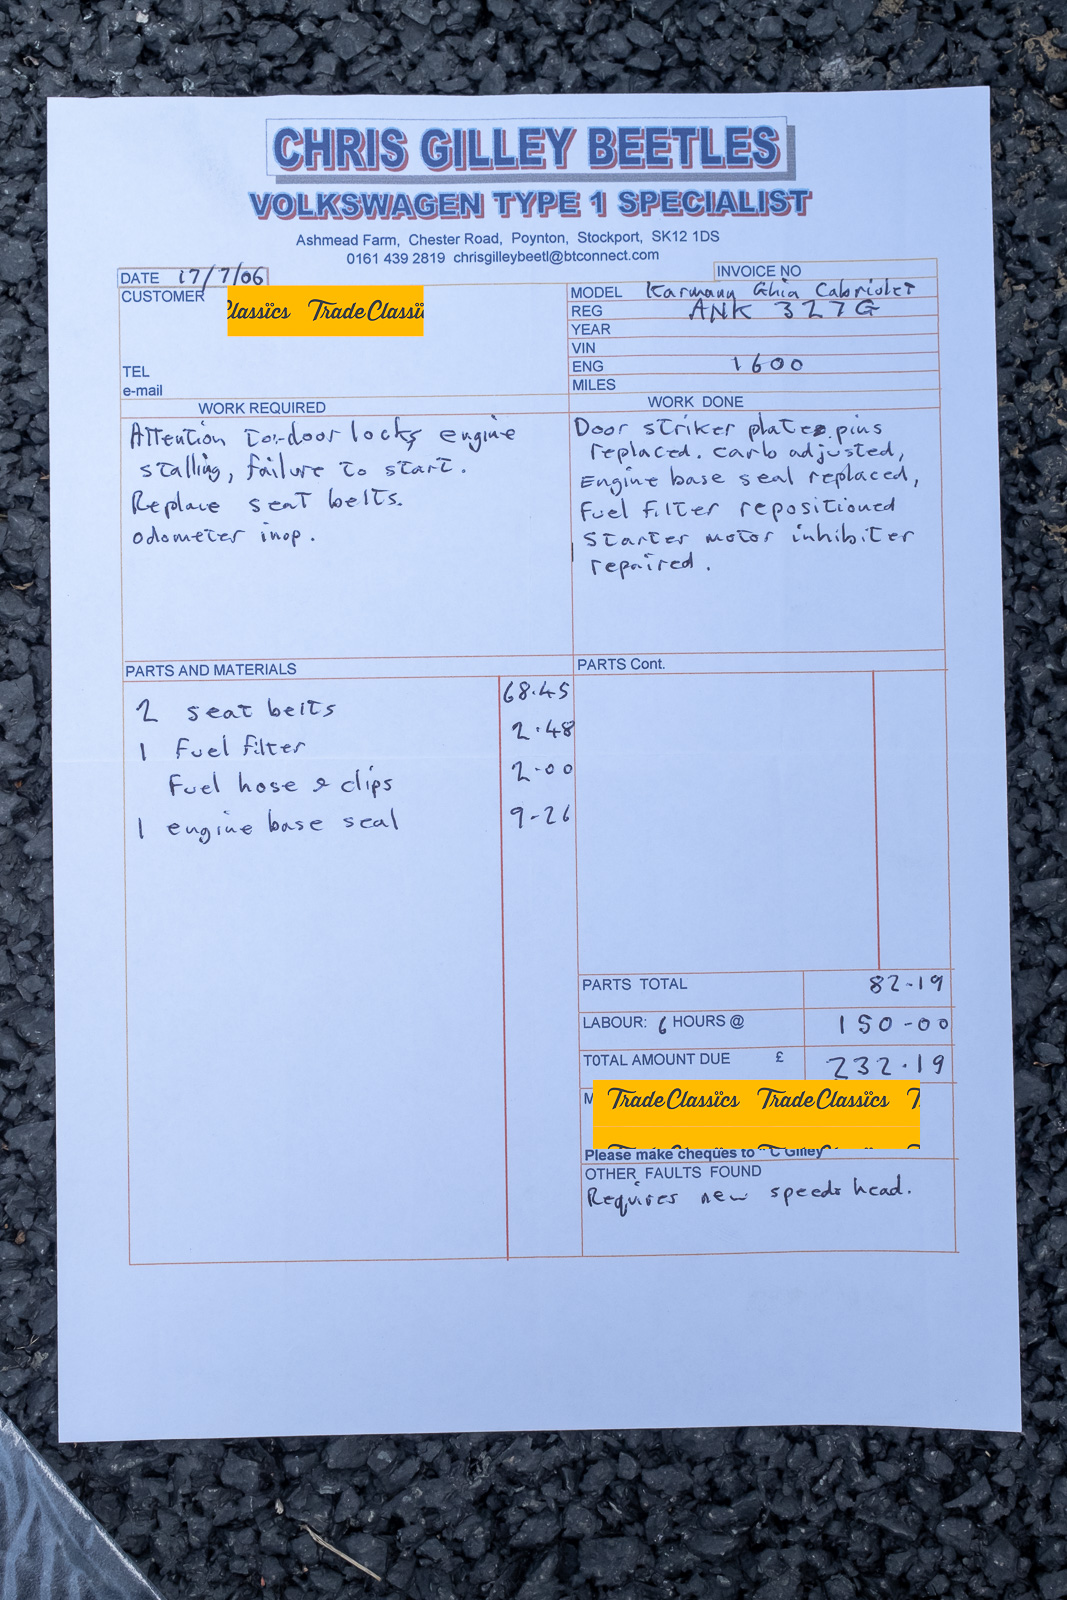 CHRIS GILLEY BEETLES
VOLKSWAGEN TYPE 1 SPECIALIST
Ashmead Farm, Chester Road, Poynton, Stockport, SK12 1DS
0161 439 2819 chrisgilleybeetl@btconnect.com
DATE 17/7/06
INVOICE NO
CUSTOMER
Classics TradeClassi
TEL
e-mail
MODEL Karmann Ghia Cabriolet
REG ANK 327G
YEAR
VIN
ENG 1600
MILES
WORK REQUIRED
Attention to:-door locks, engine
stalling, failure to start.
Replace seat belts.
odometer inop.
WORK DONE
Door striker plate pins
replaced. carb adjusted,
Engine base seal replaced,
Fuel filter repositioned
Starter motor inhibiter
repaired.
PARTS AND MATERIALS
2 seat belts 68.45
1 Fuel filter 2.48
Fuel hose & clips 2-00
1 engine base seal 9-26
PARTS Cont.
PARTS TOTAL 82-19
LABOUR: 6 HOURS @ 150-00
TOTAL AMOUNT DUE £ 232.19
M
TradeClassics TradeClassics T
Please make cheques to "C Gilley"
OTHER FAULTS FOUND
Requires new speedo head.